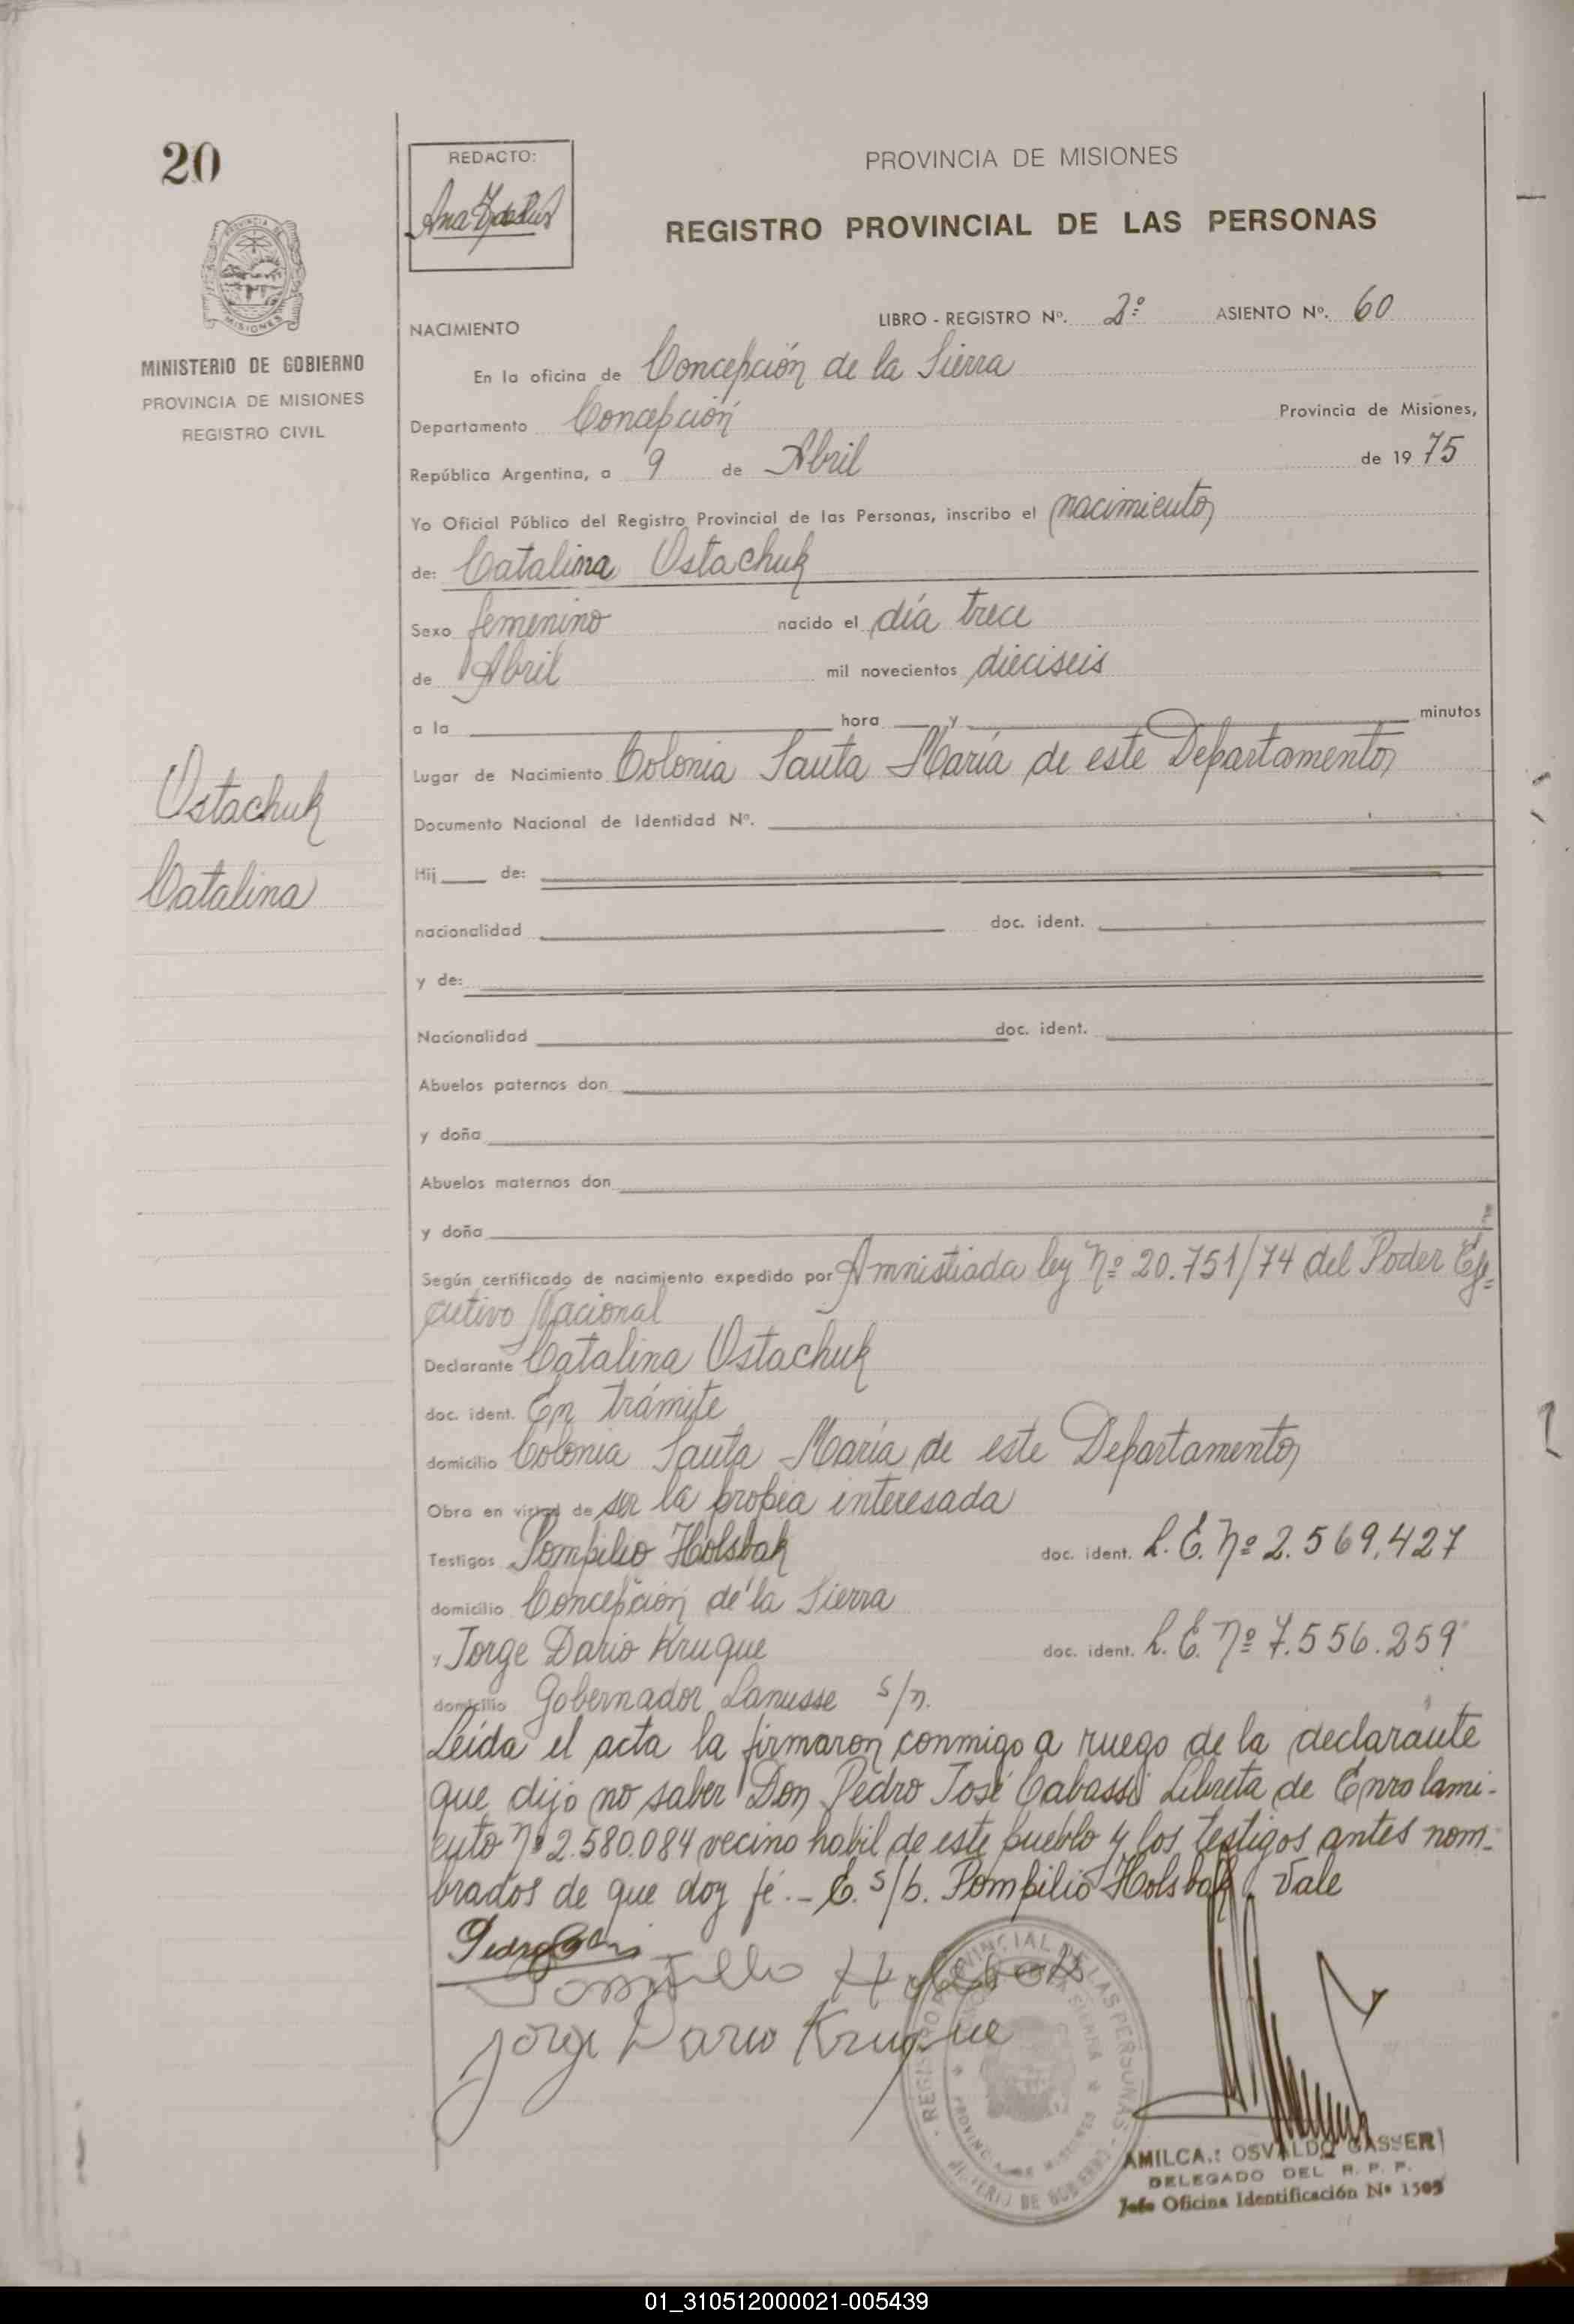 20
REDACTO:
PROVINCIA DE MISIONES
REGISTRO PROVINCIAL DE LAS PERSONAS
MISIONES
MINISTERIO DE GOBIERNO
PROVINCIA DE MISIONES
REGISTRO CIVIL
Ostachuk
Catalina
LIBRO - REGISTRO Nº. 2º ASIENTO Nº. 60
NACIMIENTO
En la oficina de Concepción de la Sierra
Departamento Concepción Provincia de Misiones,
República Argentina, a 9 de Abril de 1975
Yo Oficial Público del Registro Provincial de las Personas, inscribo el nacimiento
de: Catalina Ostachuk
Sexo femenino nacido el día trece
de Abril mil novecientos dieciseis
a la hora y minutos
Lugar de Nacimiento Colonia Santa María de este Departamento
Documento Nacional de Identidad Nº.
Hij de:
nacionalidad doc. ident.
y de:
Nacionalidad doc. ident.
Abuelos paternos don
y doña
Abuelos maternos don
y doña
Según certificado de nacimiento expedido por Amnistiada ley Nº 20.751/74 del Poder Eje=
cutivo Nacional
Declarante Catalina Ostachuk
doc. ident. En trámite
domicilio Colonia Santa María de este Departamento
Obra en virtud de ser la propia interesada
Testigos Pompilio Holsbak doc. ident. L.E. Nº 2.569.427
domicilio Concepción de la Sierra
y Jorge Dario Kruque doc. ident. L.E. Nº 7.556.259
domicilio Gobernador Lanusse s/n.
Leída el acta la firmaron conmigo a ruego de la declarante
que dijo no saber Don Pedro José Cabassi Libreta de Enrolami-
ento Nº 2.580.084 vecino habil de este pueblo y los testigos antes nom-
brados de que doy fé.- E. s/b. Pompilio Holsbak. Vale
Jorge Dario Kruque
REGISTRO PROVINCIAL DE LAS PERSONAS
OSVALDO GASSER
DELEGADO DEL R. P. P.
Jefe Oficina Identificación Nº 1505
01_310512000021-005439